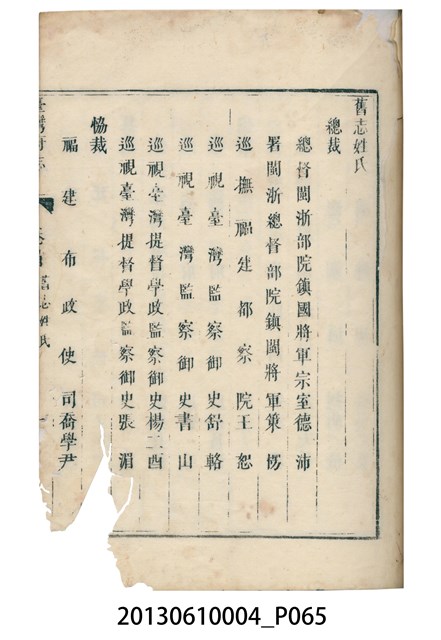 舊志姓氏
總裁
總督閩浙部院鎮國將軍宗室德沛
署閩浙總督部院鎮閩將軍策楞
巡撫福建都察院王恕
巡視臺灣監察御史舒輅
巡視臺灣監察御史書山
巡視臺灣提督學政監察御史楊二酉
巡視臺灣提督學政監察御史張湄
協裁
福建布政使司喬學尹
臺灣府志
舊志姓氏
20130610004_P065